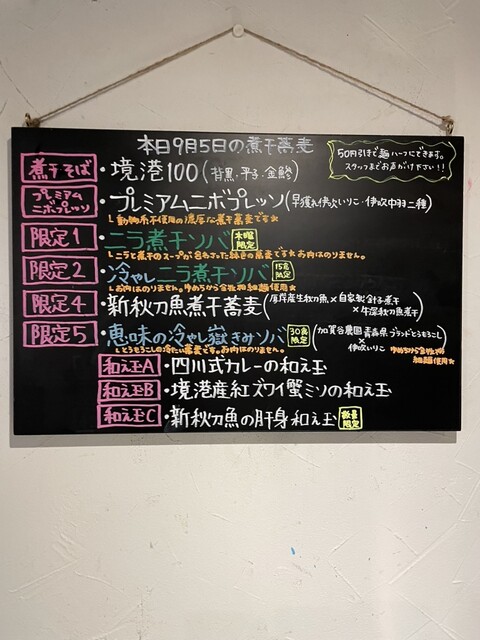 本日9月5日の煮干蕎麦
50円引きで麺ハーフにできます。
スタッフまでお声がけ下さい!!
煮干そば ・境港100(背黒、平子、金鯵)
プレミアムニボプレッソ ・プレミアムニボプレッソ(早獲れ伊吹いりこ・伊吹中羽二種)
└動物系不使用の濃厚な煮干蕎麦です☆
限定1 ・ニラ煮干ソバ 木曜限定
└ニラと煮干のスープが合わさった緑色の蕎麦です☆お肉はのりません。
限定2 ・冷やしニラ煮干ソバ 15食限定
└お肉はのりません。ゆめちから全粒粉細麺使用☆
限定4 ・新秋刀魚煮干蕎麦(厚岸産生秋刀魚×自家製針子煮干×牛深秋刀魚煮干)
限定5 ・恵味の冷やし嶽きみソバ 30食限定 (加賀谷農園 青森県ブランドとうもろこし×伊吹いりこ)
└とうもろこしの冷たい蕎麦です。お肉はのりません。 ゆめちから全粒粉細麺使用☆
和え玉A ・四川式カレーの和え玉
和え玉B ・境港産紅ズワイ蟹ミソの和え玉
和え玉C ・新秋刀魚の肝身和え玉 数量限定